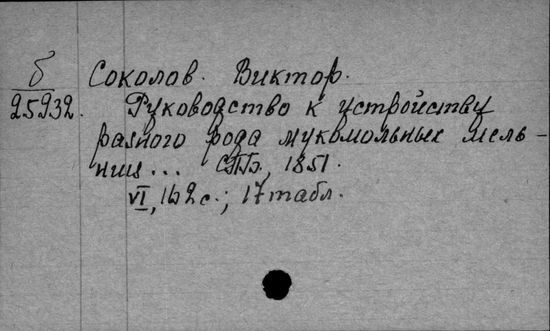 б Соколов. Виктор.
25232. Руководство к устройству
разного рода мукомольных мель-
ниц... СПб., 1851.
VI, 162 с.; 17 табл.